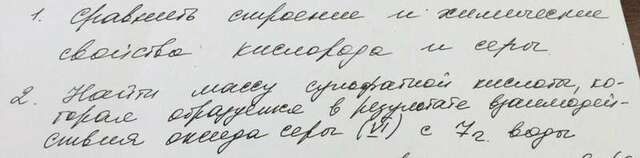 1. Сравнить строение и химические
свойства кислорода и серы
2. Найти массу сульфатной кислоты, ко-
торая образуется в результате взаимодей-
ствия оксида серы (VI) с 7г. воды